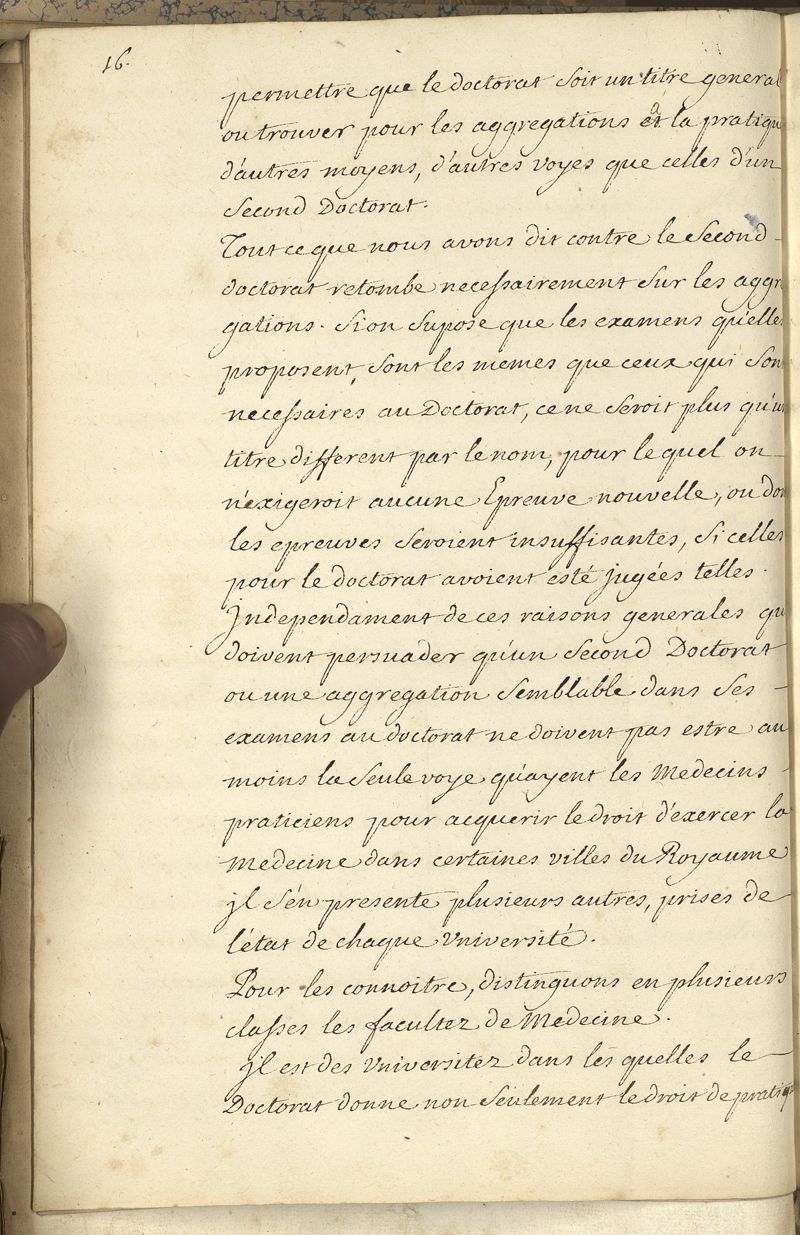 16.
permettre que le doctorat soit un titre general
ou trouver pour les aggregations et la pratiqu
d'autres moyens, d'autres voyes que celles d'un
Second Doctorat.
Tout ce que nous avons dit contre le Second
doctorat retombe necessairement sur les aggre
gations. Si on supose que les examens qu'elles
proposent, sont les memes que ceux qui son
necessaires au Doctorat, ce ne seroit plus qu'un
titre different par le nom, pour le quel on
n'exigeroit aucune Epreuve nouvelle, ou don
les epreuves seroient insuffisantes, si celles
pour le doctorat avoient esté jugées telles.
Independament de ces raisons generales qu
doivent persuader qu'un Second Doctorat
ou une aggregation semblable dans ses
examens au doctorat ne doivent pas estre au
moins la seule voye qu'ayent les Medecins
praticiens pour acquerir le droit d'exercer la
Medecine dans certaines villes du Royaume
jl s'en presente plusieurs autres, prises de
l'état de chaque Vniversité.
Pour les connoitre, distinguons en plusieurs
classes les facultez de Medecine.
jl est des Vniversitez dans les quelles le
Doctorat donne non seulement le droit de pratiq